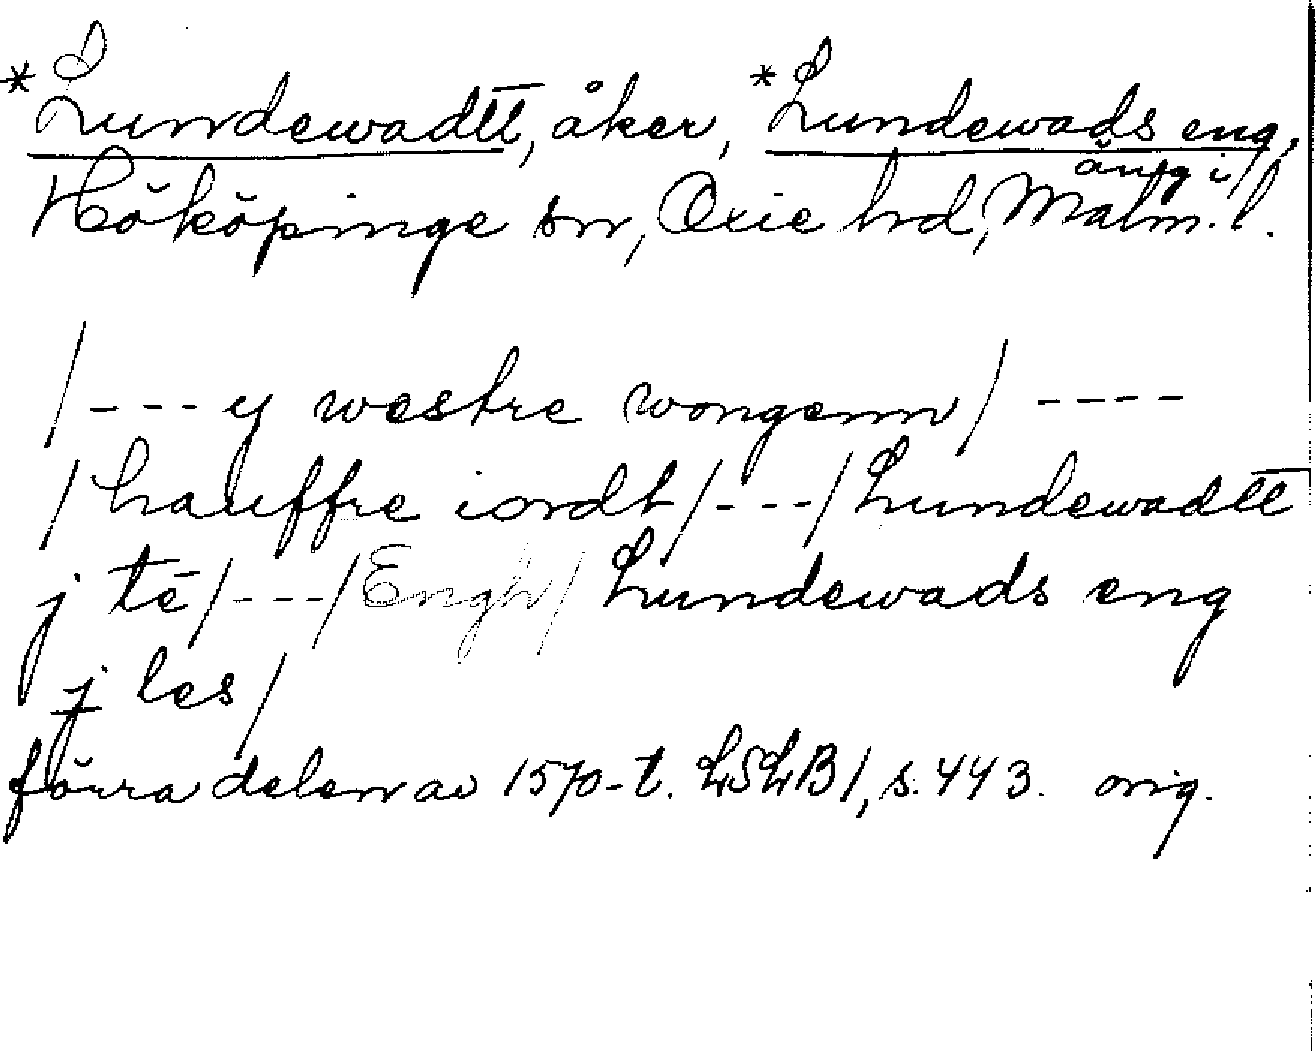 *Lundewadtt, åker, *Lundewads eng,
äng i
Hököpinge sn, Oxie hd, Malm. l.
/---y westre wongenn/ ----
/hauffre iordt/---/Lundewadtt
j tē/---/Engh/ Lundewads eng
j les/
förra delen av 1570-t. LSLB1, s. 443. orig.